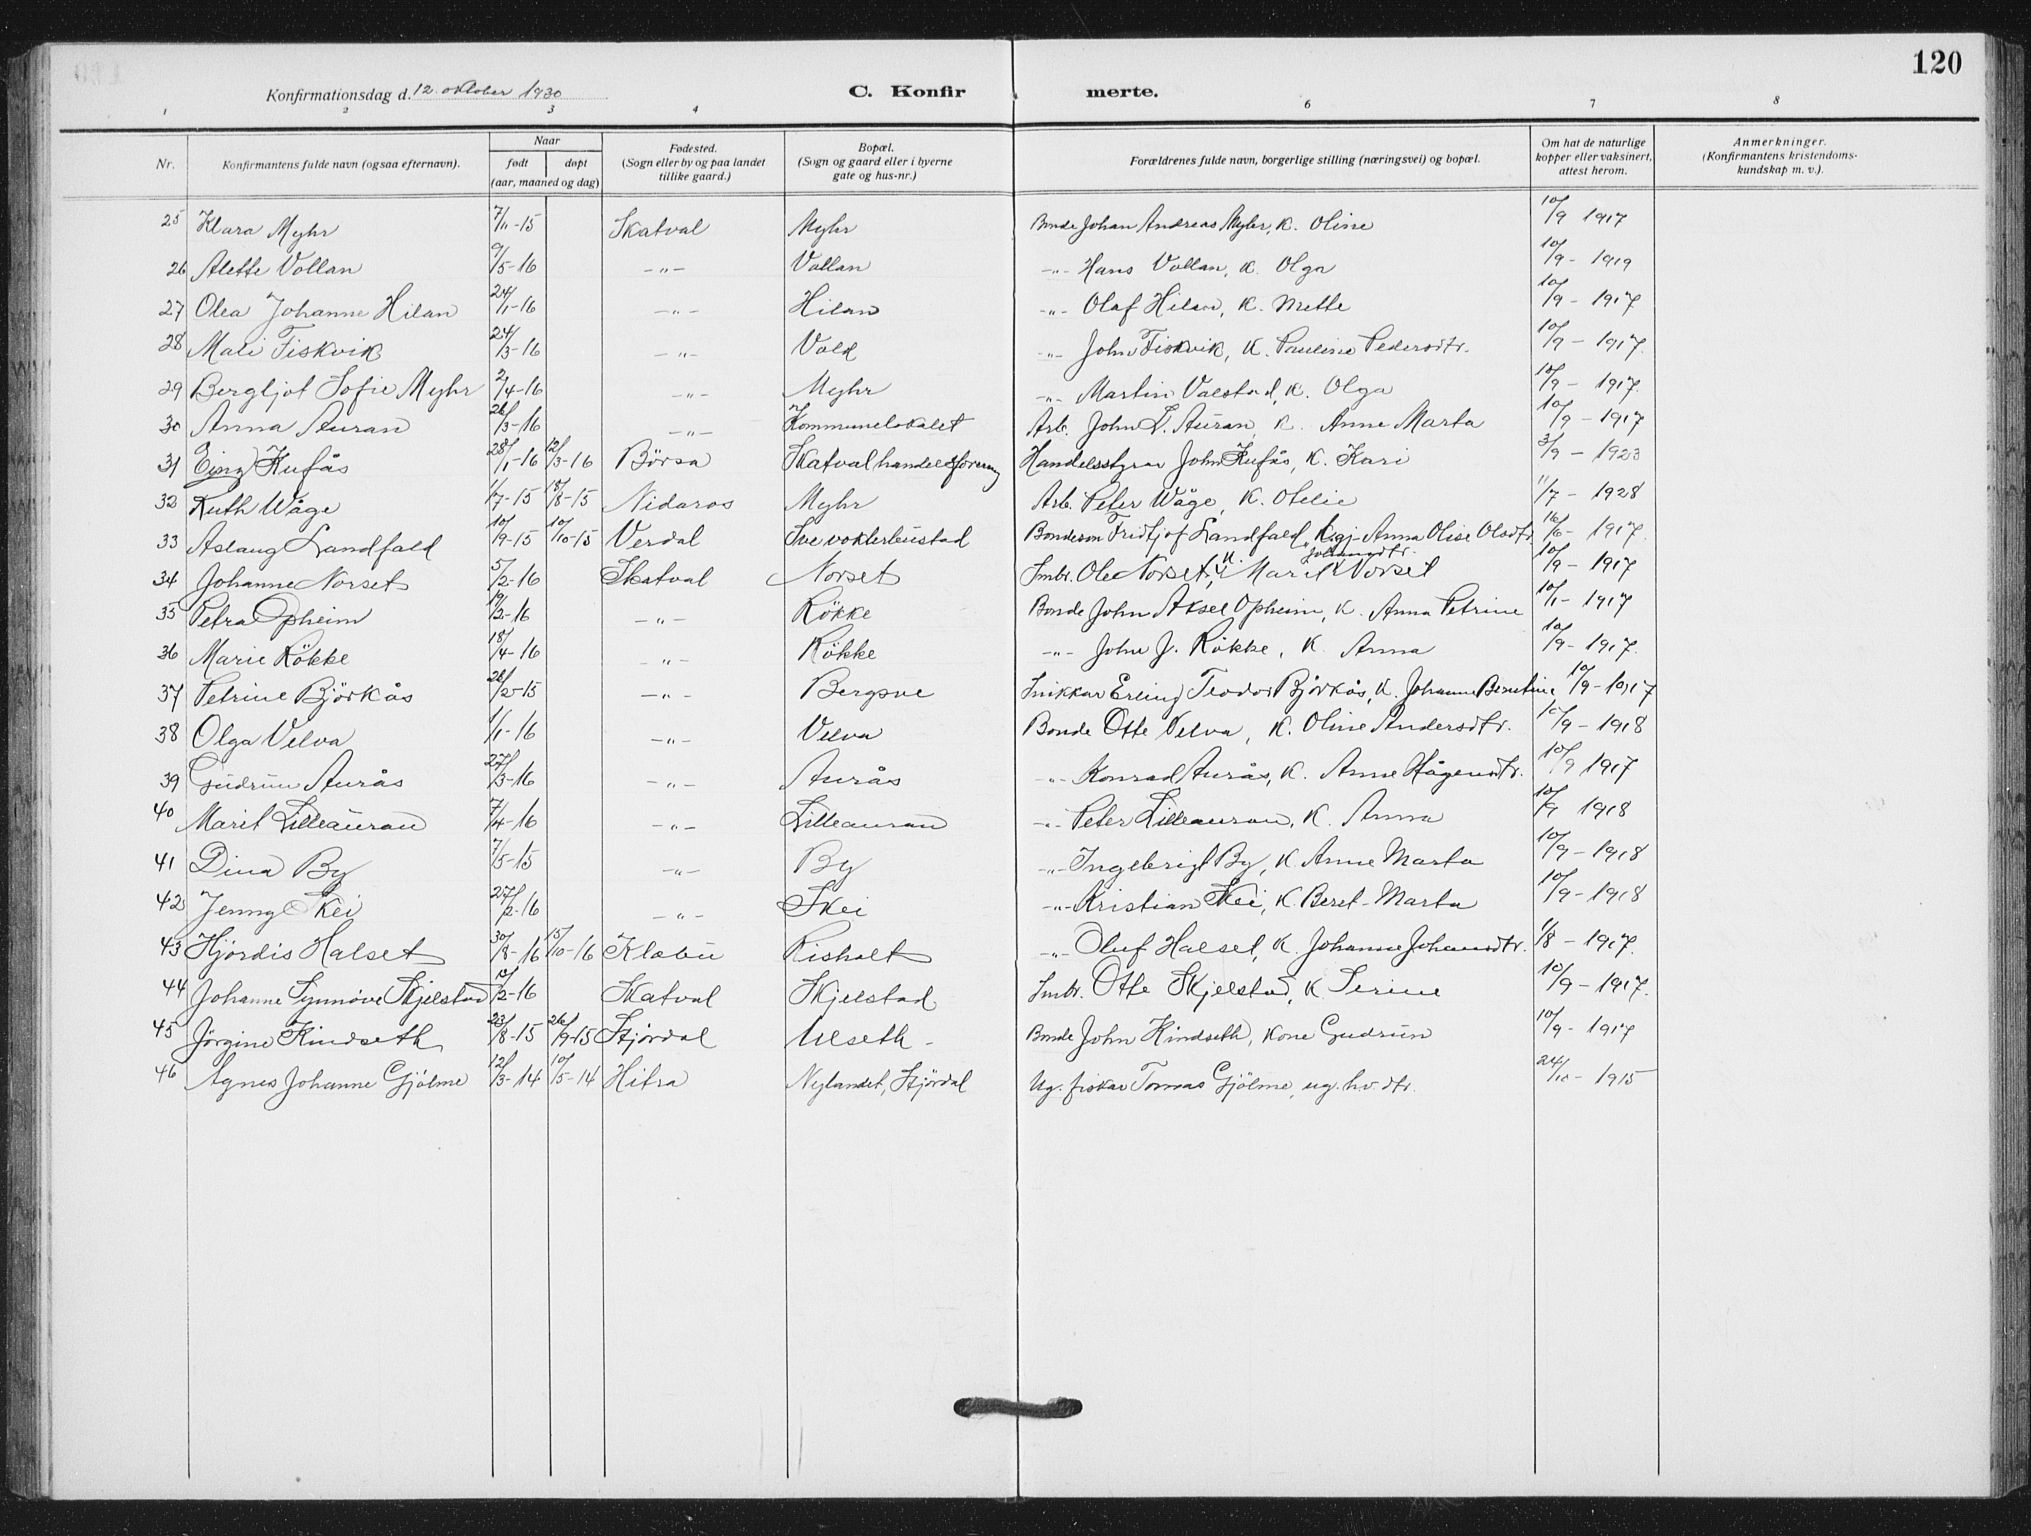 120
Konfirmationsdag d. 12. oktober 1930 C. Konfirmerte.
1 2 3 4 6 7 8
Nr. Konfirmantens fulde navn (ogsaa efternavn). Naar født døpt (aar, maaned og dag) Fødested. (Sogn eller by og paa landet tillike gaard.) Bopæl. (Sogn og gaard eller i byerne gate og hus-nr.) Forældrenes fulde navn, borgerlige stilling (næringsvei) og bopæl. Om hat de naturlige kopper eller vaksinert, attest herom. Anmerkninger. (Konfirmantens kristendomskundskap m. v.).
25 Klara Myhr 7/11-15 Skatval Myhr Bonde Johan Andreas Myhr, K. Oline 10/9 1917
26 Alette Vollan 9/5-16 -"- Vollan -"- Hans Vollan, K. Olga 10/9 - 1919
27 Olea Johanne Hilan 24/1-16 -"- Hilan -"- Olaf Hilan, K. Mette 10/9 - 1917
28 Mari Fiskvik 24/3-16 -"- Vold -"- John Fiskvik, K. Pauline Pedersdtr. 10/9 - 1917.
29 Bergljot Sofie Myhr 2/4-16 -"- Myhr -"- Martin Valstad, K. Olga 10/9 - 1917.
30 Anna Auran 26/3-16 -"- Kommunelokalet Arb. John L. Auran K. Anne Marta 10/9 - 1917
31 Kufås 28/1-16 12/3-16 Börsa Skatval handelsforening Handelsstyrar John Kufås, K. Kari 3/9 - 1923
32 Ruth Wåge 1/7-15 15/8-15 Nidaros Myhr Arb. Peter Wåge, K. Otelie 11/7 - 1928
33 Aslaug Landfald 10/9-15 10/10-15 Verdal Bondeson Fridtjof Landfald, Anna Olise Olsdtr. 16/6 - 1917.
34 Johanne Norset 5/2-16 Skatval Norset Smbr. Ole Norset, K. Marit Johansdtr. Norset 10/9 - 1917
35 Petra Opheim 19/2-16 -"- Rökke Bonde John Aksel Opheim, K. Anna Petrine 10/1 - 1917
36 Marie Rökke 18/4-16 -"- Rökke -"- John J. Rökke, K. Anna 10/9 - 1917.
37 Petrine Björkås 28/2-15 -"- Bergsve Snikkar Erling Teodor Björkås, K. Johanne Berntine 10/9 - 1917
38 Olga Velva 1/1-16 -"- Velva Bonde Otte Velva, K. Oline Andersdtr. 10/9 - 1918
39 Gudrun Aurås 27/3-16 -"- Aurås -"- Konrad Aurås, K. Anne Hågensdtr. 10/9 1917
40 Marit Lilleauran 7/4-16 -"- Lilleauran -"- Peter Lilleauran, K. Anna 10/9 1918
41 Dina By 7/5-15 -"- By -"- Ingebrigt By, K. Anne Marta 10/9 - 1918
42 Jenny Skei 27/2-16 -"- Skei -"- Kristian Skei, K. Beret-Marta 10/9 - 1918
43 Hjördis Halset 30/8-16 15/10-16 Klæbu Risholt -"- Oluf Halset, K. Johanne Johansdtr. 1/8 - 1917.
44 Johanne Synnöve Skjelstad 10/2-16 Skatval Skjelstad Smbr. Otte Skjelstad, K. Serine 10/9 - 1917.
45 Jörgine Hindseth 23/8-15 26/9-15 Stjördal Ulseth - Bonde John Hindseth, Kone Gudrun 10/9 - 1917
46 Agnes Johanne Gjölme 12/3-14 10/5-14 Hitra Nylandet, Stjördal Ug. fiskar Tomas Gjölme, ug. hv. dtr. 24/10 - 1915